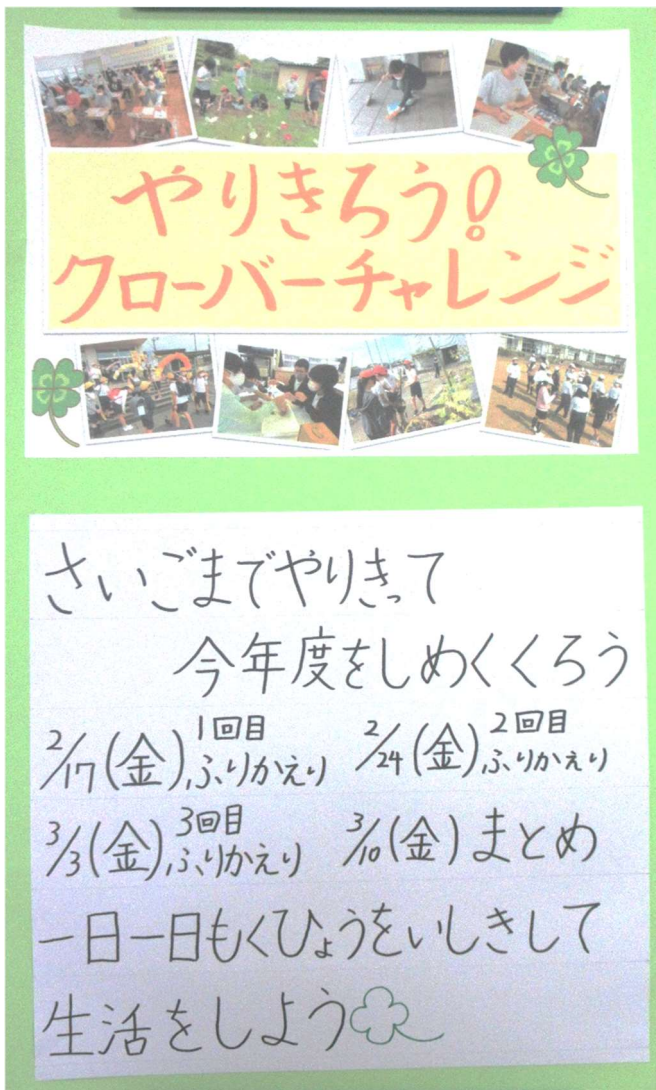 やりきろう!
クローバーチャレンジ
さいごまでやりきって
今年度をしめくくろう
2/17(金)1回目ふりかえり 2/24(金)2回目ふりかえり
3/3(金)3回目ふりかえり 3/10(金)まとめ
一日一日もくひょうをいしきして
生活をしよう